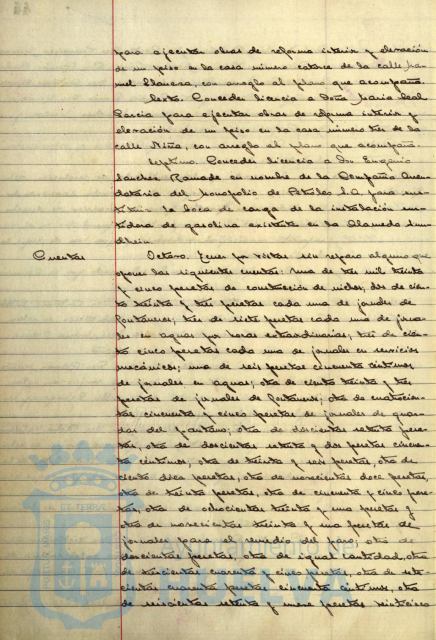 para ejecutar obras de reforma interior y elevación
de un piso en la casa número catorce de la calle Ra-
, con arreglo al plano que acompaña.
Sexto. Conceder licencia a Doña María Leal
García para ejecutar obras de reforma interior y
elevación de un piso en la casa número tres de la
calle Niña, con arreglo al plano que acompaña.
Séptimo. Conceder licencia a Don Eugenio
Sánchez Ramade en nombre de la Compañía Arren-
dataria del Monopolio de Petróleos S.A. para sus-
tituir la boca de carga de la instalación sur-
tidora de gasolina existente en la Alameda Sun-
dheim.
Cuentas
Octavo. Tener por vistas sin reparo alguno que
oponer las siguientes cuentas: una de tres mil treinta
y cinco pesetas de construcción de nichos; dos de cien-
to treinta y tres pesetas cada una de jornales de
fontaneros; tres de siete pesetas cada una de jorna-
les en aguas por horas extraordinarias; tres de cien-
to cinco pesetas cada una de jornales en servicios
mecánicos; una de seis pesetas cincuenta céntimos
de jornales en aguas; otra de ciento treinta y tres
pesetas de jornales de fontaneros; otra de cuatrocien-
tas cincuenta y cinco pesetas de jornales de guar-
das del pantano; otra de doscientas setenta pese-
tas, otra de doscientas setenta y dos pesetas cincuen-
ta céntimos; otra de treinta y seis pesetas, otra de
ciento doce pesetas, otra de novecientas doce pesetas,
otra de treinta pesetas, otra de cincuenta y cinco pese-
tas, otra de ochocientas treinta y una pesetas y
otra de novecientas treinta y una pesetas de
jornales para el remedio del paro; otra de
doscientas pesetas, otra de igual cantidad, otra
de trescientas cuarenta y cinco pesetas, otra de sete-
cientas cuarenta pesetas cincuenta céntimos, otra
de seiscientas setenta y nueve pesetas veinticinco